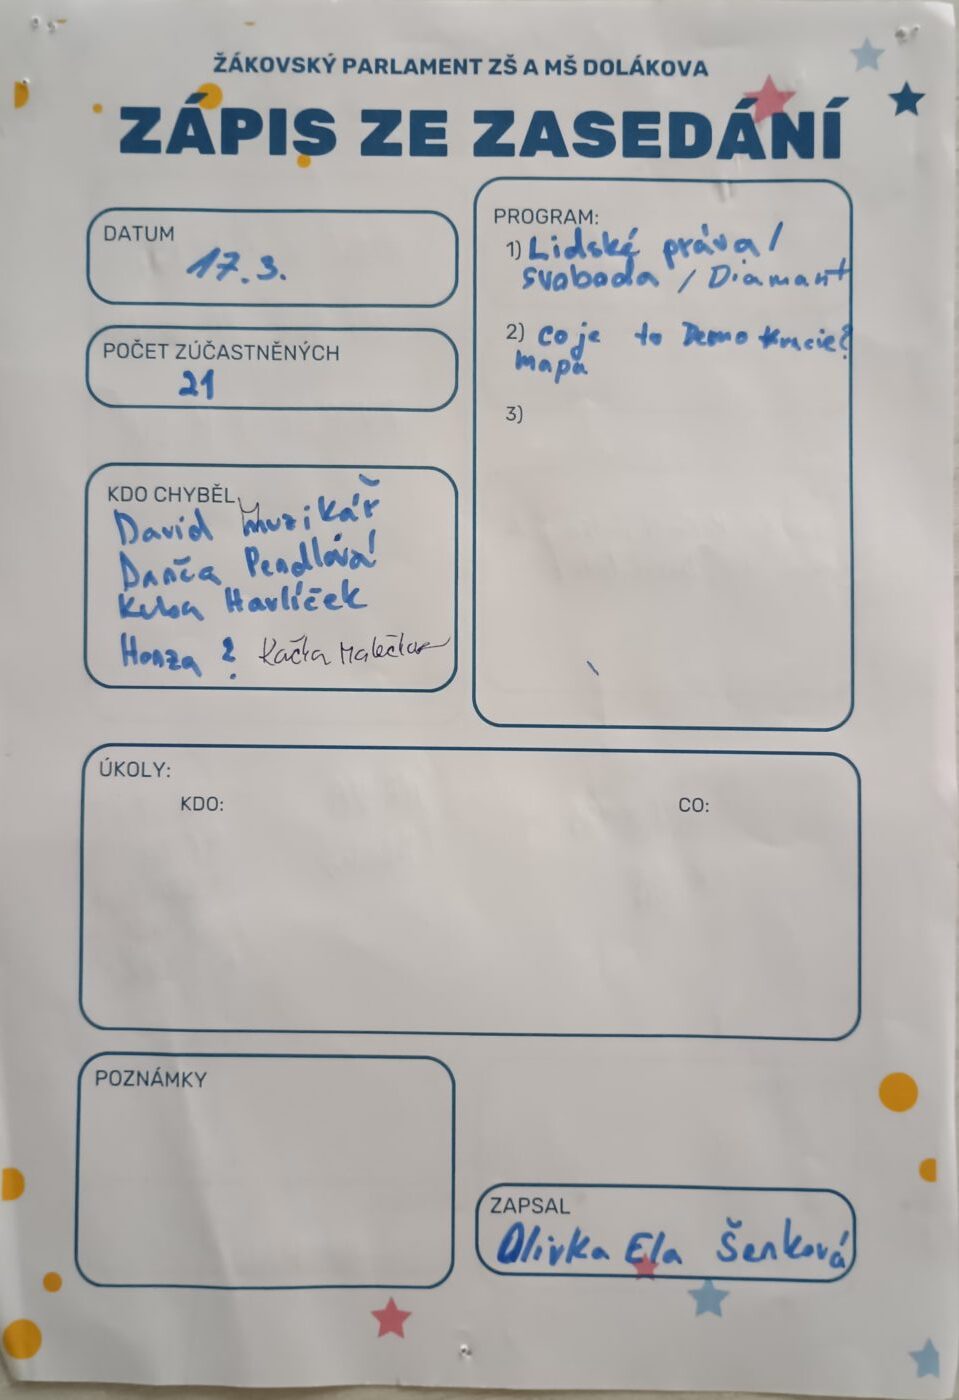 ŽÁKOVSKÝ PARLAMENT ZŠ A MŠ DOLÁKOVA
ZÁPIS ZE ZASEDÁNÍ
DATUM
17.3.
POČET ZÚČASTNĚNÝCH
21
KDO CHYBĚL
David Muzikář
Danča Pendlová
Kuba Havlíček
Honza ? Kačka
PROGRAM:
1) Lidské práva /
svoboda / Diamant
2) Co je to Demokracie?
mapa
3)
ÚKOLY:
KDO: CO:
POZNÁMKY
ZAPSAL
Olivka Ela Šenková